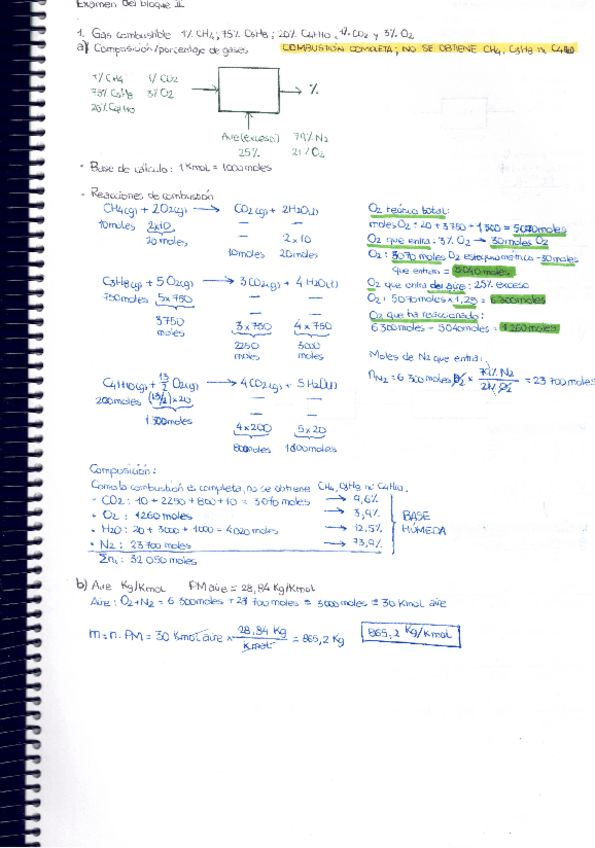 Examen del bloque II
1. Gas combustible 1% CH4; 75% C3H8; 20% C4H10, 1% CO2 y 3% O2
a) Composición/porcentaje de gases COMBUSTIÓN COMPLETA; NO SE OBTIENE CH4, C3H8 ni C4H10
1% CH4 1% CO2
75% C3H8 3% O2
20% C4H10
%
Aire (exceso) 79% N2
25% 21% O2
- Base de cálculo: 1 Kmol = 1000 moles
- Reacciones de combustión
CH4(g) + 2O2(g) → CO2(g) + 2H2O(l)
10moles 2x10
20 moles
2x10
10moles 20moles
C3H8(g) + 5O2(g) → 3CO2(g) + 4H2O(l)
750moles 5x750
3750 moles
3x750 4x750
2250 moles 3000 moles
C4H10(g) + 13/2 O2(g) → 4CO2(g) + 5H2O(l)
200moles (13/2)x20
1300moles
4x200 5x20
800moles 1000moles
O2 teórico total:
moles O2: 20 + 3750 + 1300 = 5070moles
O2 que entra: 3% O2 → 30 moles O2
O2: 5070 moles O2 estequiométrico - 30 moles
que entran = 5040 moles
O2 que entra del aire: 25% exceso
O2: 5040moles x 1,25 = 6300moles
O2 que ha reaccionado:
6300moles - 5040moles = 1260 moles
Moles de N2 que entra:
nN2 = 6300moles O2 x 79% N2 / 21% O2 = 23700moles
Composición:
Como la combustión es completa, no se obtiene CH4, C3H8 ni C4H10.
- CO2: 10 + 2250 + 800 + 10 = 3070 moles → 9,6%
• O2: 1260 moles → 3,9%
• H2O: 20 + 3000 + 1000 = 4020 moles → 12,5%
• N2: 23700 moles → 73,9%
BASE HÚMEDA
Σni: 32050 moles
b) Aire Kg/Kmol PM aire = 28,84 Kg/Kmol
Aire: O2+N2 = 6300moles + 23700 moles = 3000 moles = 30 Kmol aire
m = n·PM = 30 Kmol aire x 28,84 Kg / Kmol = 865,2 Kg
865,2 Kg/Kmol